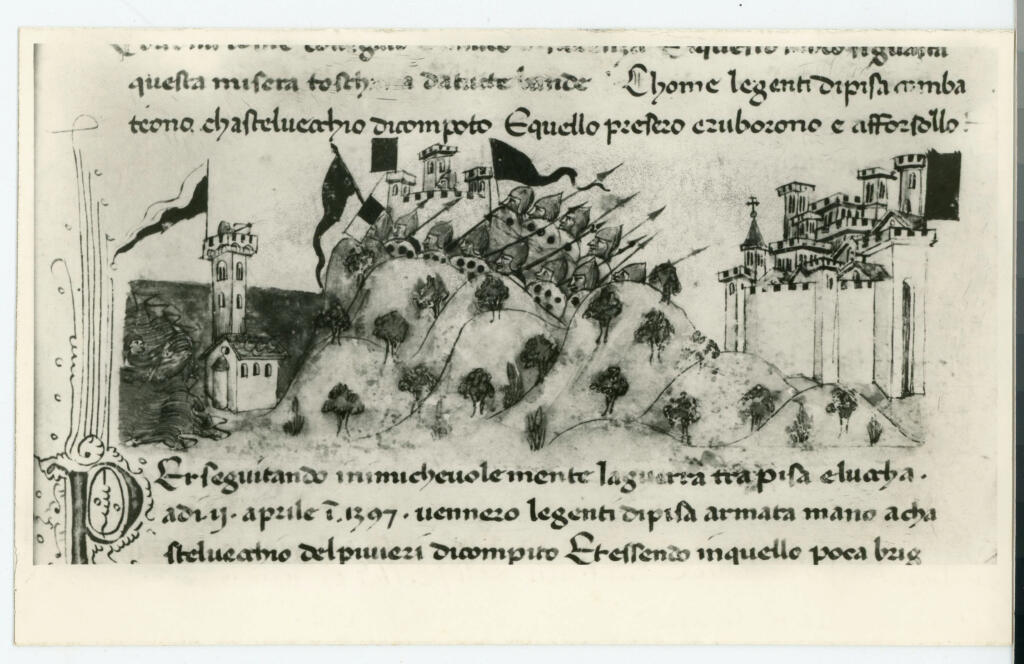 questa misera da tucte bande Chome le genti di pisa comba
teono chastelvecchio di compoto Equello presero e ruborono e afforzollo
Perseguitando inimichevolemente la guerra tra pisa e luccha.
adi ii. aprile ī. 1397. vennero le genti di pisa armata mano a cha
stelvecchio del piuieri di compito Et essendo in quello poca brig